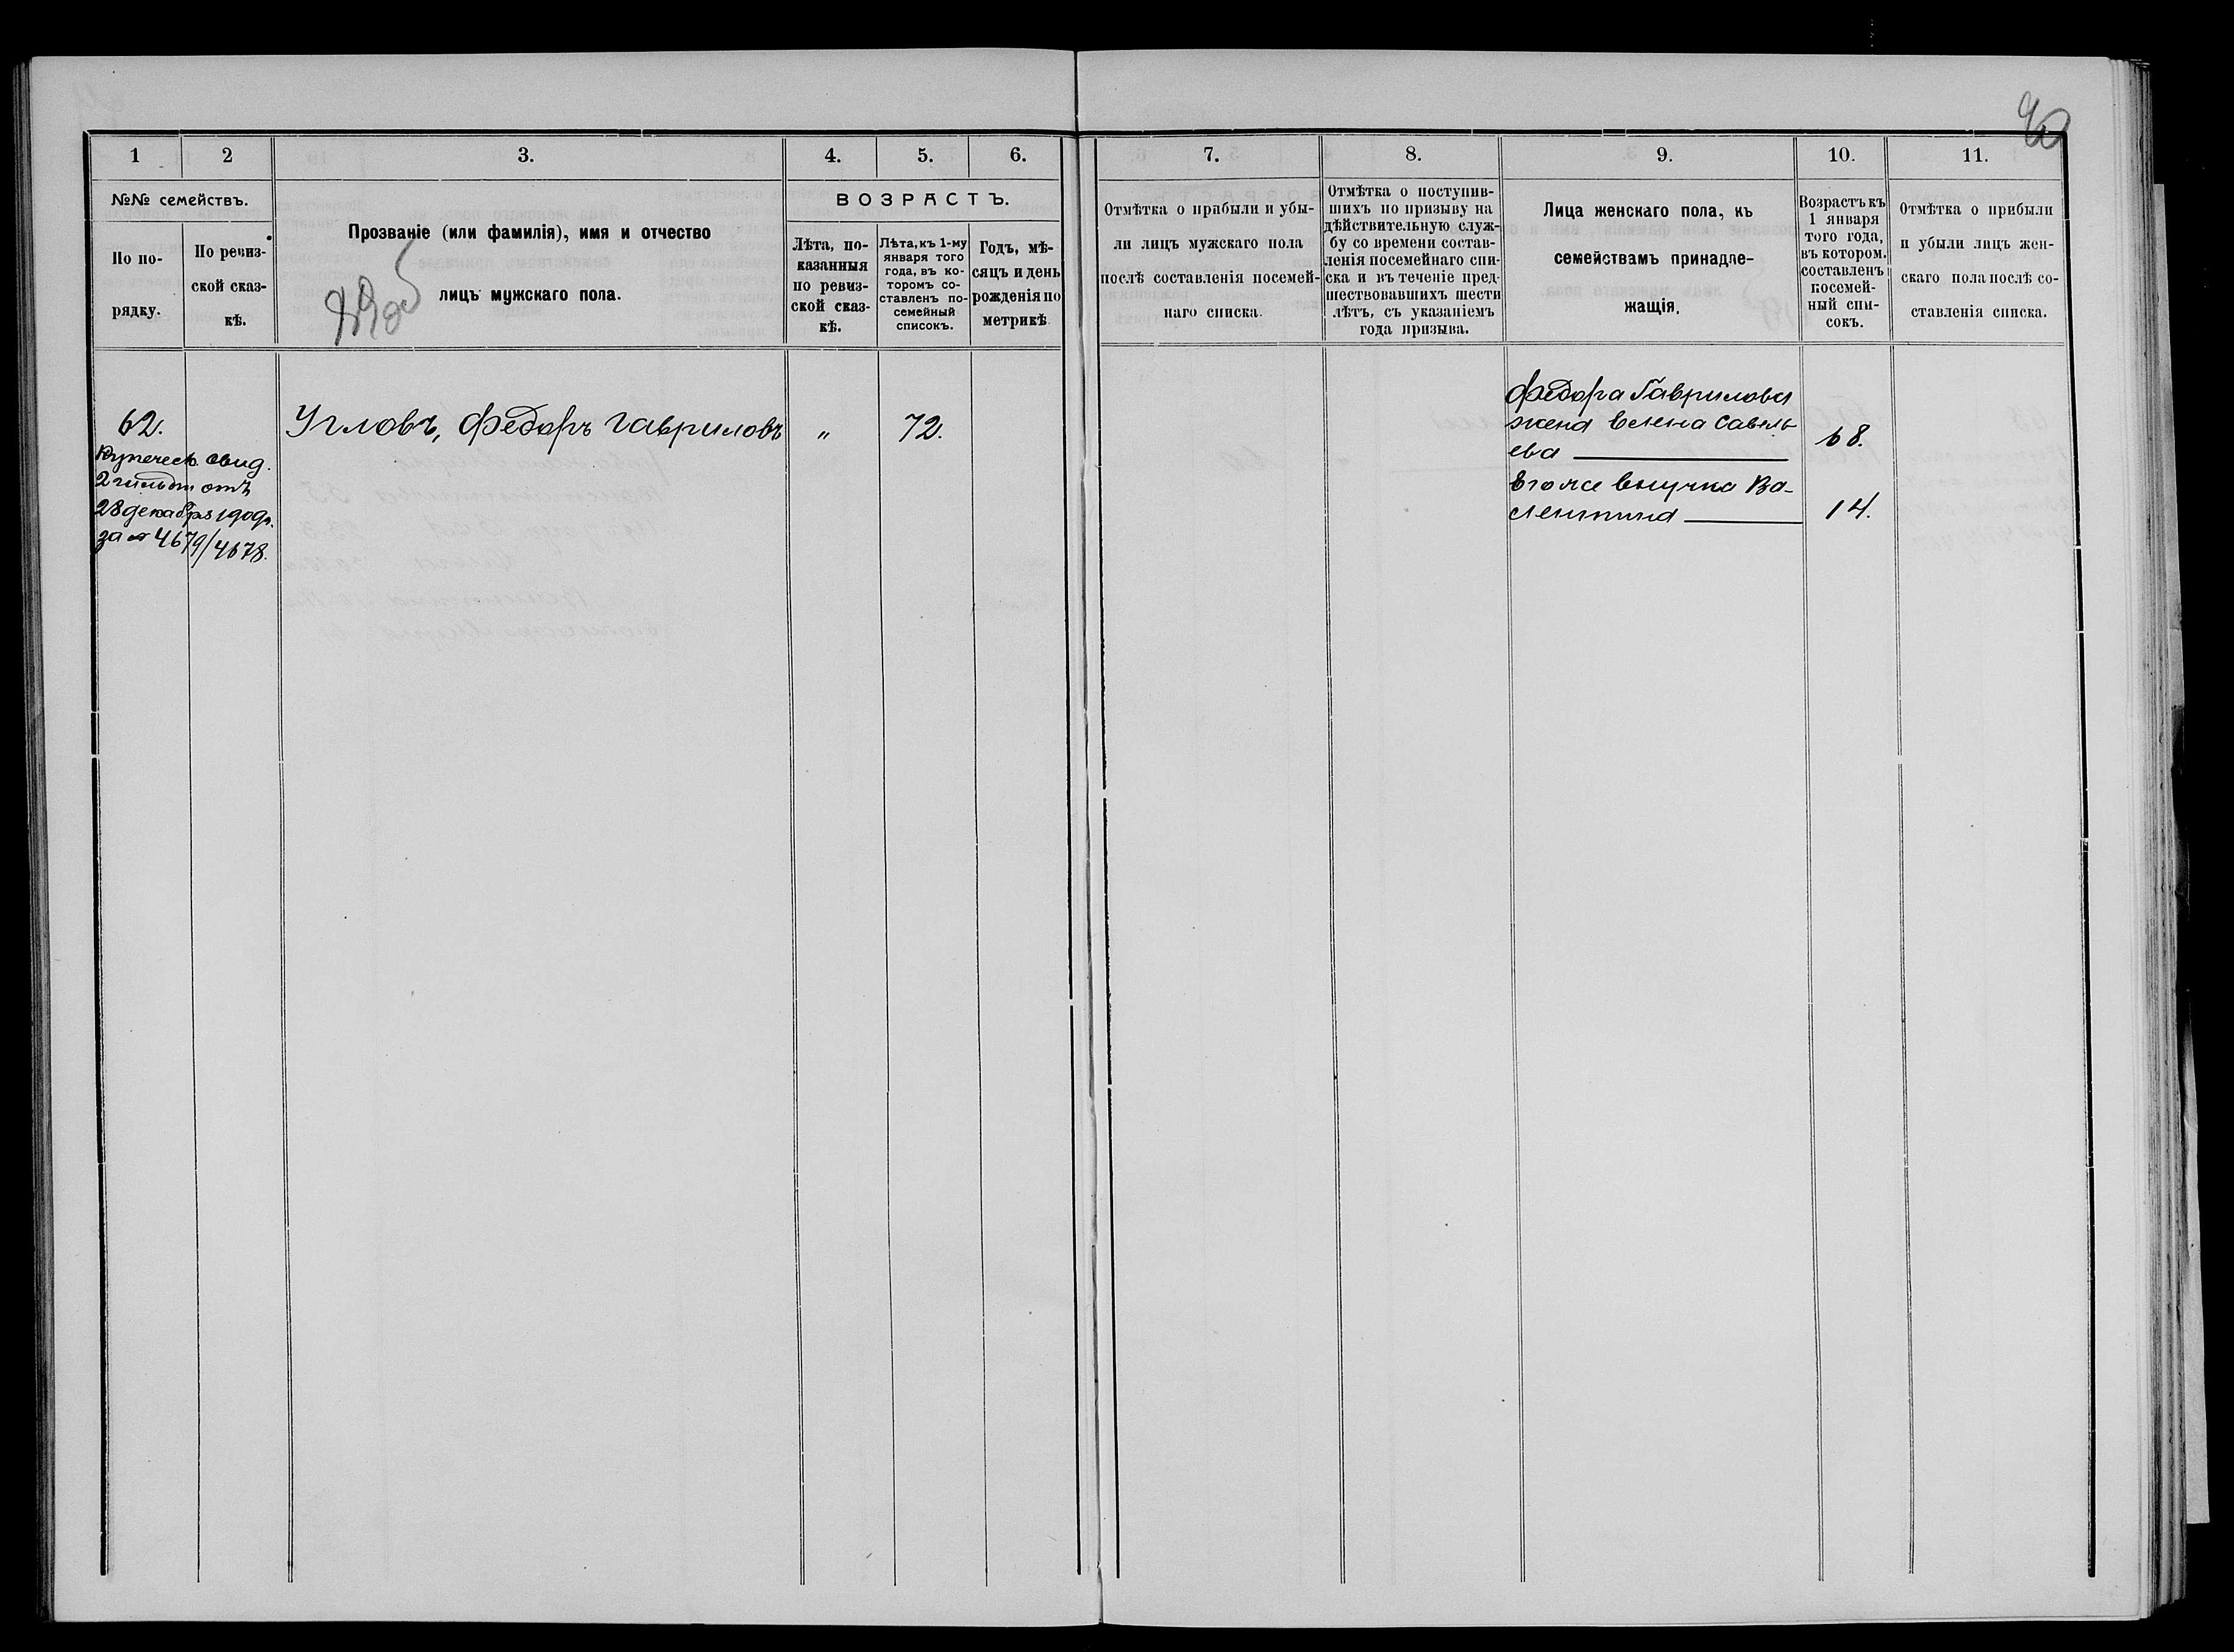 1
2
3.
4.
5.
6.
№№ семействъ.
По по-
рядку.
По ревиз-
ской сказ-
кѣ.
Прозваніе (или фамилія), имя и отчество
лицъ мужскаго пола.
ВОЗРАСТЪ.
Лѣта, по-
казанныя
по ревиз-
ской сказ-
кѣ.
Лѣта, къ 1-му
января того
года, въ ко-
торомъ со-
ставленъ по-
семейный
списокъ.
Годъ, мѣ-
сяцъ и день
рожденія по
метрикѣ
62.
Купеческ. свид.
2 гильдіи отъ
28 декабря 1909г.
за № 4679/4678.
Угловъ, Федоръ Гавриловъ
"
72.
7.
8.
9.
10.
11.
Отмѣтка о прибыли и убы-
ли лицъ мужскаго пола
послѣ составленія посемей-
наго списка.
Отмѣтка о поступив-
шихъ по призыву на
дѣйствительную служ-
бу со времени состав-
ленія посемейнаго спи-
ска и въ теченіе пред-
шествовавшихъ шести
лѣтъ, съ указаніемъ
года призыва.
Лица женскаго пола, къ
семействамъ принадле-
жащія.
Возрастъ къ
1 января
того года,
въ котором.
составленъ
посемей-
ный спи-
сокъ.
Отмѣтка о прибыли
и убыли лицъ жен-
скаго пола послѣ со-
ставленія списка.
Федора Гаврилова
жена Елена Савель-
ева
68.
Его же внучка Ва-
лентина
14.